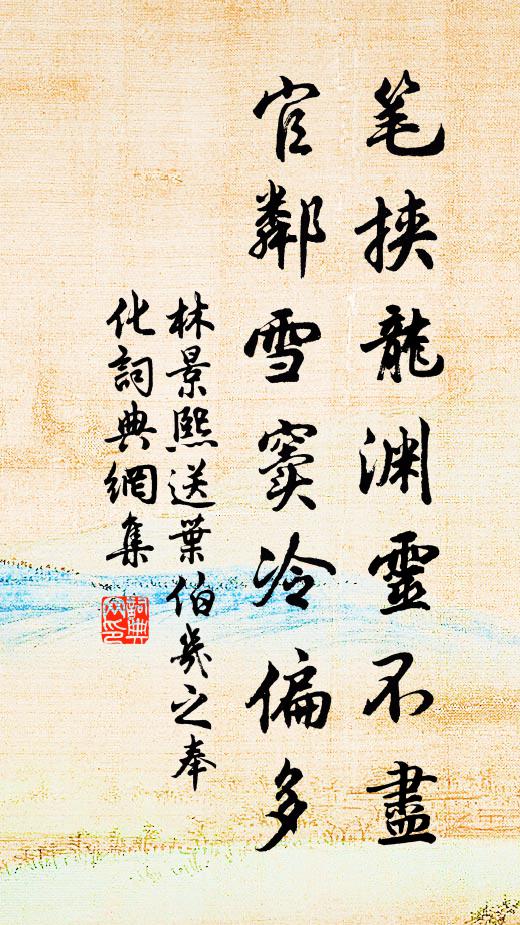 笔挟龍渊靈不盡
官鄰雪窦冷偏多
林景熙送葉伯幾之奉
化詞典網集
詞典網印